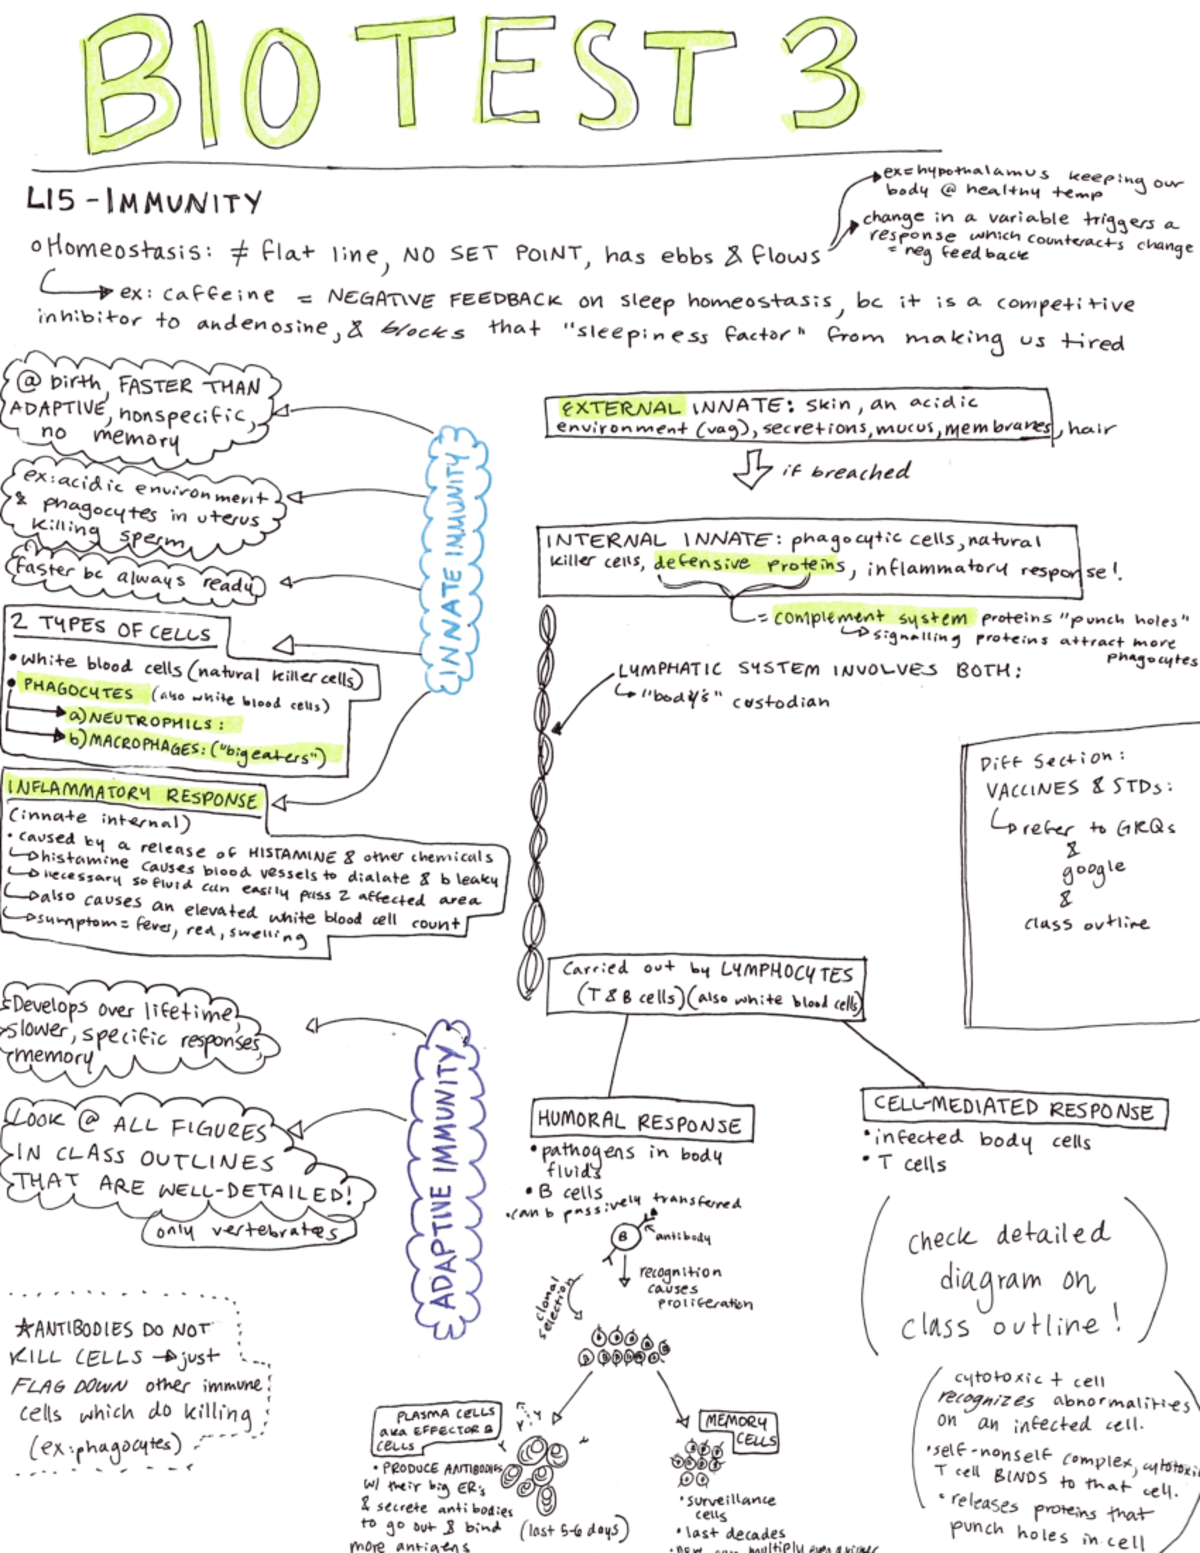 BIO TEST 3
L15 - IMMUNITY
ex = hypothalamus keeping our
body @ healthy temp
change in a variable triggers a
response which counteracts change
= neg feedback
Homeostasis: ≠ flat line, NO SET POINT, has ebbs & flows
ex: caffeine = NEGATIVE FEEDBACK on sleep homeostasis, bc it is a competitive
inhibitor to andenosine, & blocks that "sleepiness factor" from making us tired
@ birth, FASTER THAN
ADAPTIVE, nonspecific,
no memory
ex: acidic environment
& phagocytes in uterus
killing sperm
faster bc always ready
INNATE IMMUNITY
2 TYPES OF CELLS
• white blood cells (natural killer cells)
• PHAGOCYTES (also white blood cells)
a) NEUTROPHILS:
b) MACROPHAGES: ("big eaters")
INFLAMMATORY RESPONSE
(innate internal)
• caused by a release of HISTAMINE & other chemicals
histamine causes blood vessels to dialate & b leaky
necessary so fluid can easily pass 2 affected area
also causes an elevated white blood cell count
sumptom = fever, red, swelling
EXTERNAL INNATE: skin, an acidic
environment (vag), secretions, mucus, membranes, hair
if breached
INTERNAL INNATE: phagocytic cells, natural
killer cells, defensive proteins, inflammatory response!
= complement system proteins "punch holes"
signalling proteins attract more
phagocytes
LYMPHATIC SYSTEM INVOLVES BOTH:
"body's" custodian
Diff Section:
VACCINES & STDs:
refer to GRQs
&
google
&
class outline
Develops over lifetime,
slower, specific responses,
memory
LOOK @ ALL FIGURES
IN CLASS OUTLINES
THAT ARE WELL-DETAILED!
only vertebrates
ADAPTIVE IMMUNITY
Carried out by LYMPHOCYTES
(T & B cells) (also white blood cells)
HUMORAL RESPONSE
• pathogens in body
fluids
• B cells
• can b passively transferred
B
antibody
recognition
causes
proliferation
clonal
selection
CELL-MEDIATED RESPONSE
• infected body cells
• T cells
(check detailed
diagram on
class outline!)
☆ANTIBODIES DO NOT
KILL CELLS → just
FLAG DOWN other immune
cells which do killing
(ex: phagocytes)
PLASMA CELLS
aka EFFECTOR B
CELLS
• PRODUCE ANTIBODIES
w/ their big ER's
& secrete antibodies
to go out & bind
more antigens
(last 5-6 days)
MEMORY
CELLS
• surveillance
cells
• last decades
cytotoxic t cell
recognizes abnormalities
on an infected cell.
• self-nonself complex, cytotoxic
T cell BINDS to that cell.
• releases proteins that
punch holes in cell